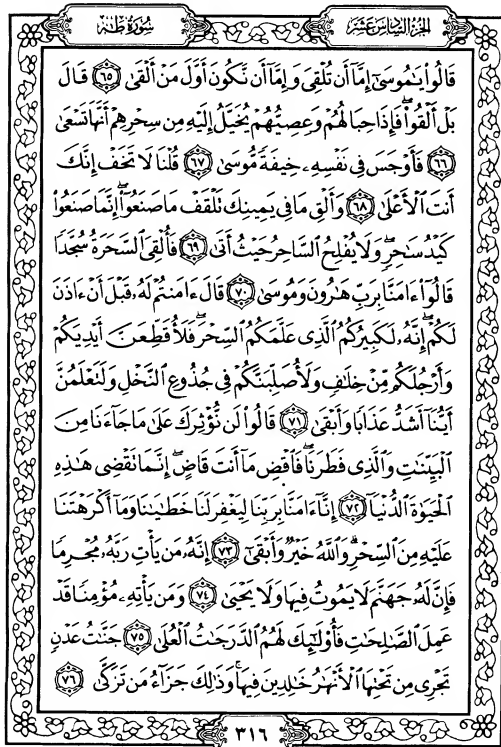 سُورَةُ طه
الجزء السادس عشر
قَالُوا۟ يَـٰمُوسَىٰٓ إِمَّآ أَن تُلْقِىَ وَإِمَّآ أَن نَّكُونَ أَوَّلَ مَنْ أَلْقَىٰ ٦٥ قَالَ
بَلْ أَلْقُوا۟ۖ فَإِذَا حِبَالُهُمْ وَعِصِيُّهُمْ يُخَيَّلُ إِلَيْهِ مِن سِحْرِهِمْ أَنَّهَا تَسْعَىٰ
٦٦ فَأَوْجَسَ فِى نَفْسِهِۦ خِيفَةً مُّوسَىٰ ٦٧ قُلْنَا لَا تَخَفْ إِنَّكَ
أَنتَ ٱلْأَعْلَىٰ ٦٨ وَأَلْقِ مَا فِى يَمِينِكَ تَلْقَفْ مَا صَنَعُوٓا۟ۖ إِنَّمَا صَنَعُوا۟
كَيْدُ سَـٰحِرٍۖ وَلَا يُفْلِحُ ٱلسَّاحِرُ حَيْثُ أَتَىٰ ٦٩ فَأُلْقِىَ ٱلسَّحَرَةُ سُجَّدًا
قَالُوٓا۟ ءَامَنَّا بِرَبِّ هَـٰرُونَ وَمُوسَىٰ ٧٠ قَالَ ءَامَنتُمْ لَهُۥ قَبْلَ أَنْ ءَاذَنَ
لَكُمْۖ إِنَّهُۥ لَكَبِيرُكُمُ ٱلَّذِى عَلَّمَكُمُ ٱلسِّحْرَۖ فَلَأُقَطِّعَنَّ أَيْدِيَكُمْ
وَأَرْجُلَكُم مِّنْ خِلَـٰفٍ وَلَأُصَلِّبَنَّكُمْ فِى جُذُوعِ ٱلنَّخْلِ وَلَتَعْلَمُنَّ
أَيُّنَآ أَشَدُّ عَذَابًا وَأَبْقَىٰ ٧١ قَالُوا۟ لَن نُّؤْثِرَكَ عَلَىٰ مَا جَآءَنَا مِنَ
ٱلْبَيِّنَـٰتِ وَٱلَّذِى فَطَرَنَاۖ فَٱقْضِ مَآ أَنتَ قَاضٍۖ إِنَّمَا تَقْضِى هَـٰذِهِ
ٱلْحَيَوٰةَ ٱلدُّنْيَآ ٧٢ إِنَّآ ءَامَنَّا بِرَبِّنَا لِيَغْفِرَ لَنَا خَطَـٰيَـٰنَا وَمَآ أَكْرَهْتَنَا
عَلَيْهِ مِنَ ٱلسِّحْرِۗ وَٱللَّهُ خَيْرٌ وَأَبْقَىٰٓ ٧٣ إِنَّهُۥ مَن يَأْتِ رَبَّهُۥ مُجْرِمًا
فَإِنَّ لَهُۥ جَهَنَّمَ لَا يَمُوتُ فِيهَا وَلَا يَحْيَىٰ ٧٤ وَمَن يَأْتِهِۦ مُؤْمِنًا قَدْ
عَمِلَ ٱلصَّـٰلِحَـٰتِ فَأُو۟لَـٰٓئِكَ لَهُمُ ٱلدَّرَجَـٰتُ ٱلْعُلَىٰ ٧٥ جَنَّـٰتُ عَدْنٍ
تَجْرِى مِن تَحْتِهَا ٱلْأَنْهَـٰرُ خَـٰلِدِينَ فِيهَاۚ وَذَٰلِكَ جَزَآءُ مَن تَزَكَّىٰ ٧٦
٣١٦